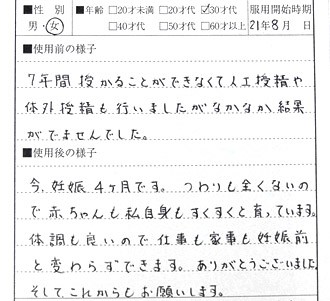 ■性 別 ■年齢 □20才未満 □20才代 ☑30才代 服用開始時期
男・女 □40才代 □50才代 □60才以上 21年8月 日
■使用前の様子
7年間授かることができなくて人工授精や
体外授精も行いましたがなかなか結果
がでませんでした。
■使用後の様子
今,妊娠4ヶ月です。つわりも全くないの
で赤ちゃんも私自身もすくすくと育っています。
体調も良いので仕事も家事も妊娠前
と変わらずできます。ありがとうございました
そしてこれからもお願いします。